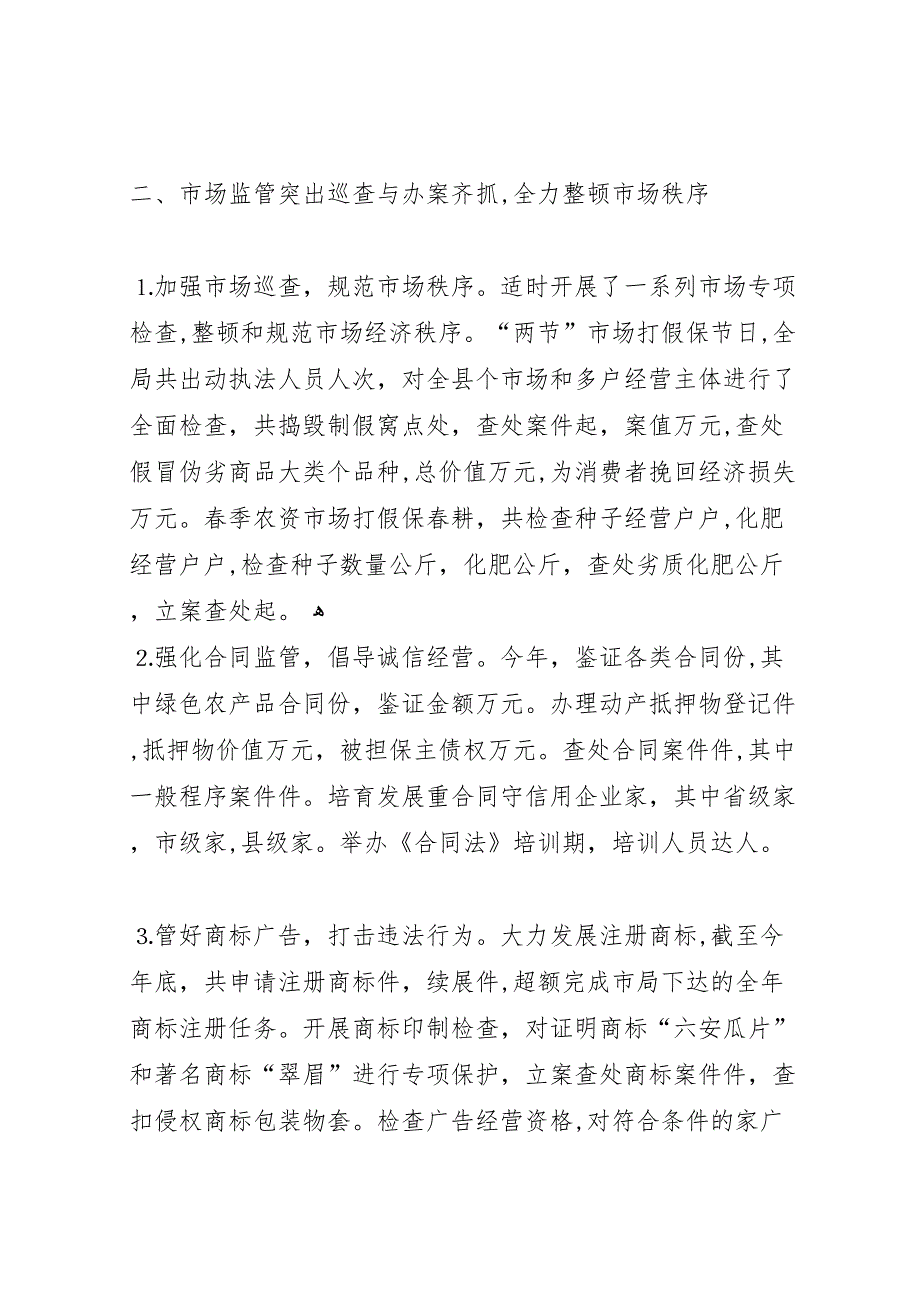 二、市场监管突出巡查与办案齐抓,全力整顿市场秩序
1.加强市场巡查，规范市场秩序。适时开展了一系列市场专项
检查,整顿和规范市场经济秩序。“两节”市场打假保节日,全
局共出动执法人员人次，对全县个市场和多户经营主体进行了
全面检查，共捣毁制假窝点处，查处案件起，案值万元,查处
假冒伪劣商品大类个品种,总价值万元,为消费者挽回经济损失
万元。春季农资市场打假保春耕，共检查种子经营户户,化肥
经营户户,检查种子数量公斤，化肥公斤，查处劣质化肥公斤
，立案查处起。 ﻫ
2.强化合同监管，倡导诚信经营。今年，鉴证各类合同份,其
中绿色农产品合同份，鉴证金额万元。办理动产抵押物登记件
,抵押物价值万元，被担保主债权万元。查处合同案件件,其中
一般程序案件件。培育发展重合同守信用企业家，其中省级家
，市级家,县级家。举办《合同法》培训期，培训人员达人。
3.管好商标广告，打击违法行为。大力发展注册商标,截至今
年底，共申请注册商标件，续展件,超额完成市局下达的全年
商标注册任务。开展商标印制检查，对证明商标“六安瓜片”
和著名商标“翠眉”进行专项保护，立案查处商标案件件，查
扣侵权商标包装物套。检查广告经营资格,对符合条件的家广